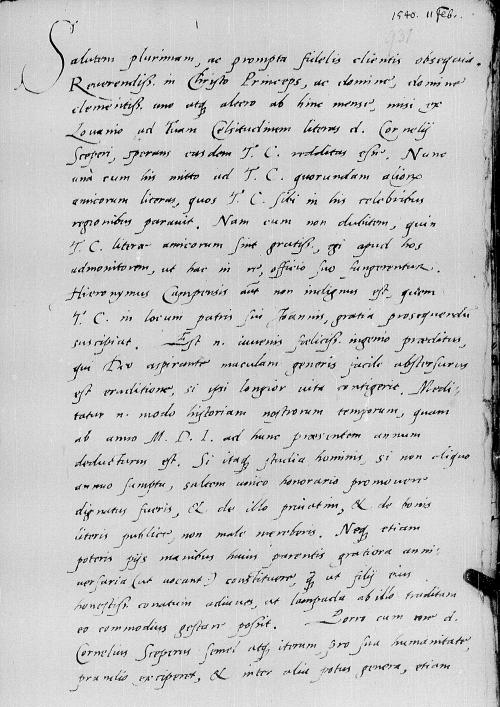 1540. 11 Feb.
931
Salutem plurimam, ac prompta fidelis clientis obsequia.
Reverendiss. in Christo Princeps, ac domine, domine
clementiss. uno atq; altero ab hinc mense, misi ex
Lovanio ad Tuam Celsitudinem literas d. Cornelij
Sceperi, sperans easdem T. C. redditas esse. Nunc
unà cum his mitto ad T. C. quorundam aliorum
amicorum literas, quos T. C. sibi in his celebribus
regionibus paravit. Nam cum non dubitem, quin
T. C. literae amicorum sint gratiss. egi apud hos
admonitorem, ut hac in re, officio suo fungerentur.
Hieronymus Campensis aut non indignus est, quem
T. C. in locum patris sui Joannis, gratia prosequendu
suscipiat. Est n. iuvenis foeliciss. ingenio praeditus,
qui Deo aspirante maculam generis facile abstersurus
est eruditione, si ipsi longior vita contigerit. Medi-
tatur n. modo historiam nostrorum temporum, quam
ab anno M. D. I. ad hunc praesentem annum
deducturus est. Si itaq; studia hominis, si non aliquo
annuo sumptu, saltem unico honorario promovere
dignatus fueris, & de illo privatim, & de bonis
literis publice, non male mereberis. Neq; etiam
poteris pijs manibus huius parentis gratiora anni-
versaria (ut vocant) constituere, q; ut filij eius
honestiss. conatum adiuves, ut lampada ab illo traditam
eo commodius gestare possit. Porro cum me d.
Cornelius Sceperus semel atq; iterum pro sua humanitate,
prandio exciperet, & inter alia potus genera, etiam